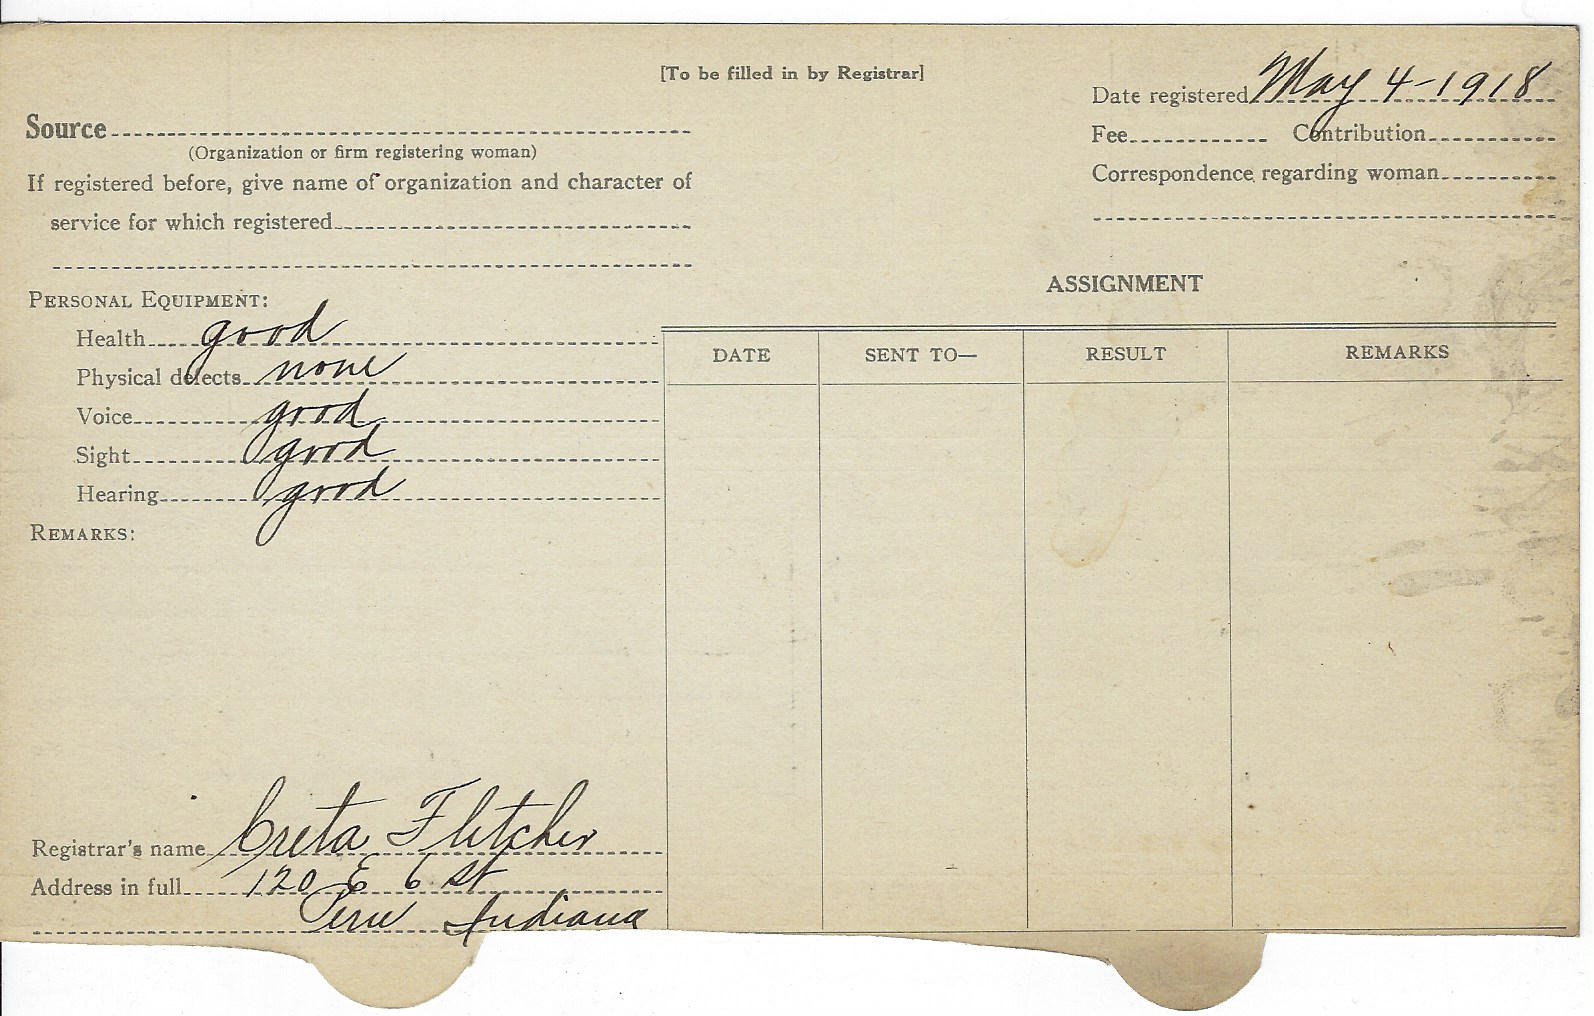 [To be filled in by Registrar]
Date registered May 4-1918
Source
Fee Contribution
(Organization or firm registering woman)
Correspondence regarding woman
If registered before, give name of organization and character of
service for which registered
ASSIGNMENT
PERSONAL EQUIPMENT:
Health good
Physical defects none
Voice good
Sight good
Hearing good
REMARKS:
DATE SENT TO— RESULT REMARKS
Registrar's name Creta Fletcher
Address in full 120 E 6 St
Peru Indiana